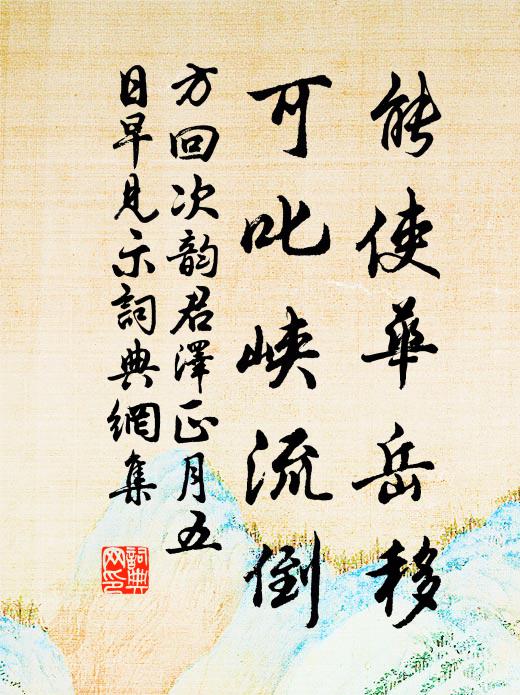 能使華岳移
可叱峡流倒
方回次韵君澤正月五
日早見示詞典網集
詞典
网印